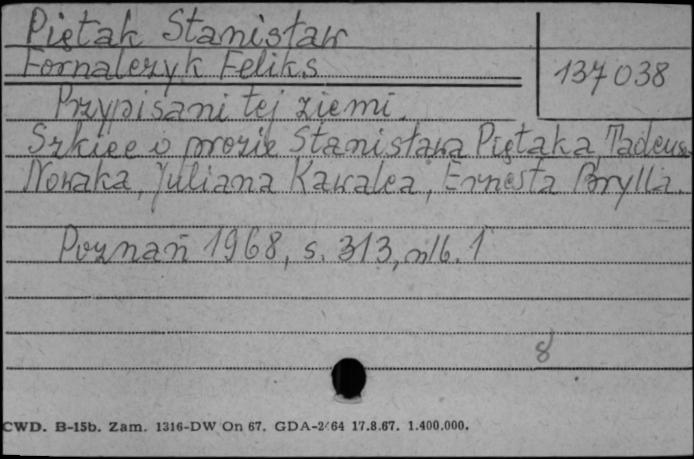 Piętak Stanisław
Fornalczyk Feliks
137 038
Przypisani tej ziemi.
Szkice o prozie Stanisława Piętaka, Tadeusza
Nowaka, Juliana Kawalca, Ernesta Brylla.
Poznań 1968, s. 313, nlb. 1
8
CWD. B-15b. Zam. 1316-DW On 67. GDA-2/64 17.8.67. 1.400.000.